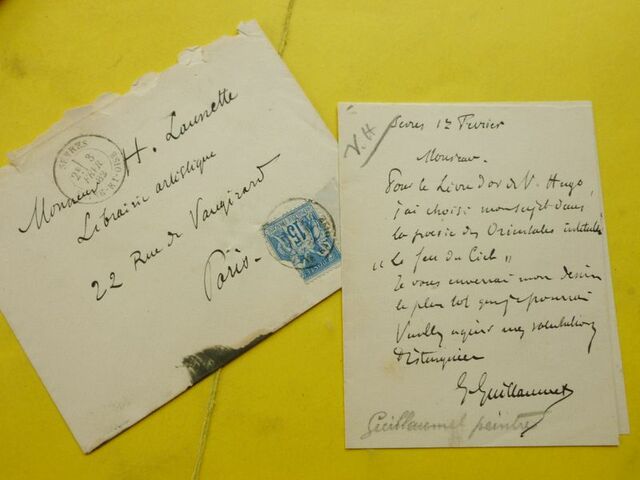 SÈVRES
3
FEVR
82
S-ET-OISE
Monsieur H. Launette
Librairie artistique
22 Rue de Vaugirard
Paris.
15
V. H
Sevres 1er Fevrier
Monsieur.
Pour le Livre d'or de V. Hugo,
j'ai choisi mon sujet dans
la poesie des Orientales intitulée
"Le feu du Ciel"
Je vous enverrai mon dessin
le plus tot que je pourrai
Veuillez agréer mes salutations
Distinguées
G Guillaumet
Guillaumet peintre